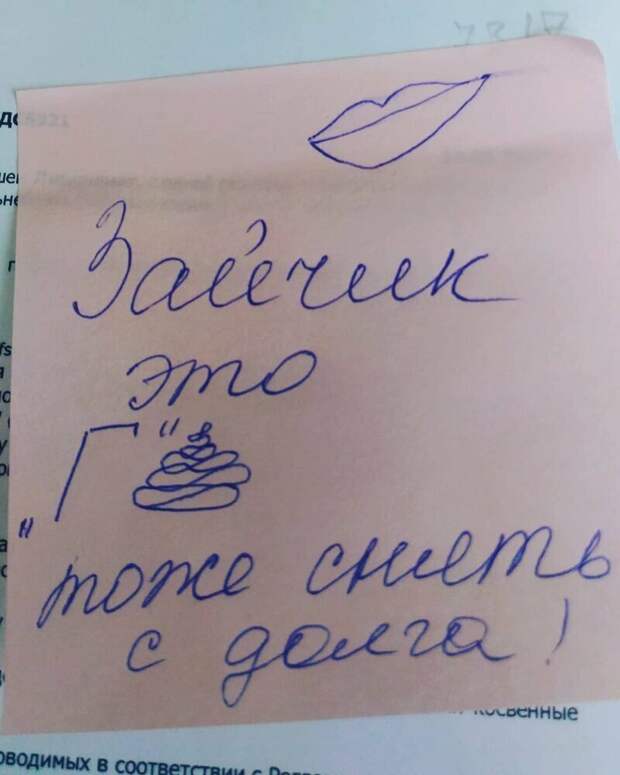 Зайчик
это
„Г“
тоже снять
с долга!
косвенные
оводимых в соответствии с